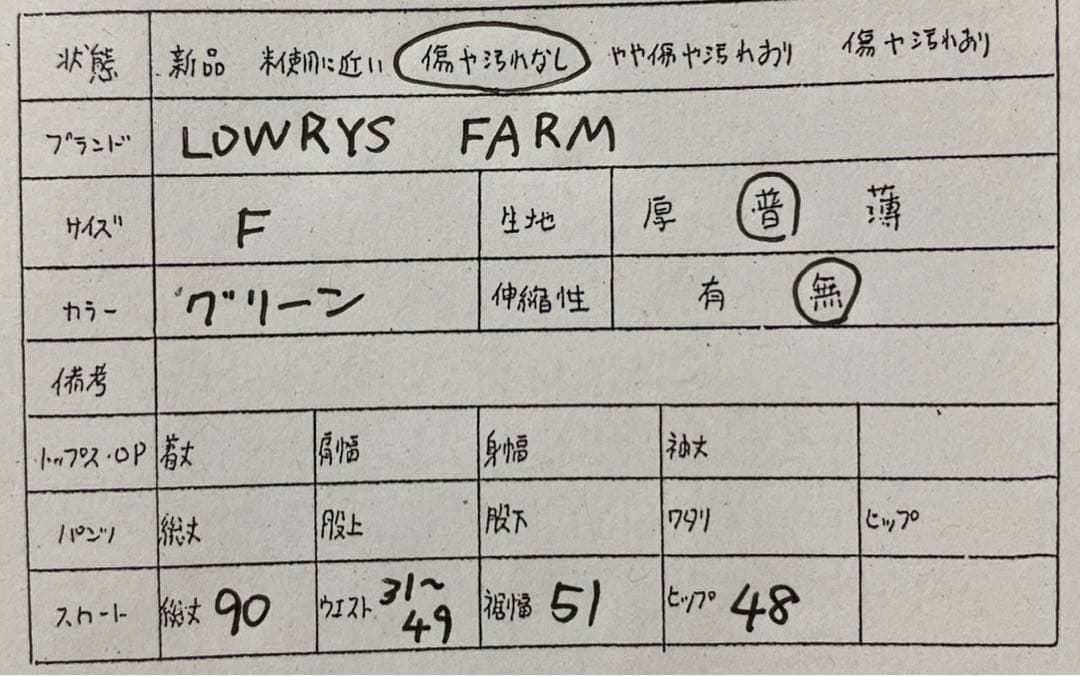 状態 新品 未使用に近い 傷や汚れなし やや傷や汚れあり 傷や汚れあり
ブランド LOWRYS FARM
サイズ F 生地 厚 普 薄
カラー グリーン 伸縮性 有 無
備考
トップス・OP 着丈 肩幅 身幅 袖丈
パンツ 総丈 股上 股下 ワタリ ヒップ
スカート 総丈 90 ウエスト 31〜49 裾幅 51 ヒップ 48